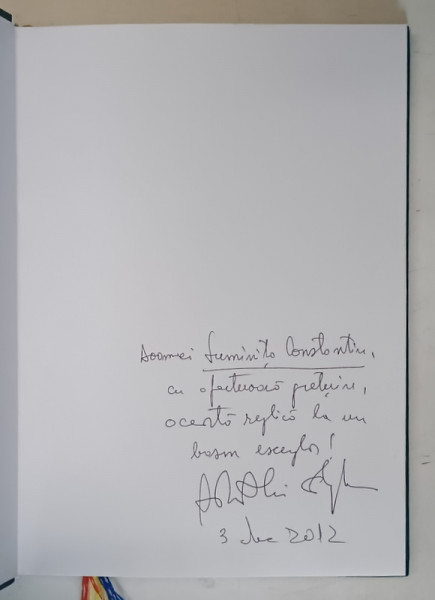 Doamnei Luminița Constantin,
cu afectuoasă prețuire,
acestă replică la un
basm
3 dec 2012